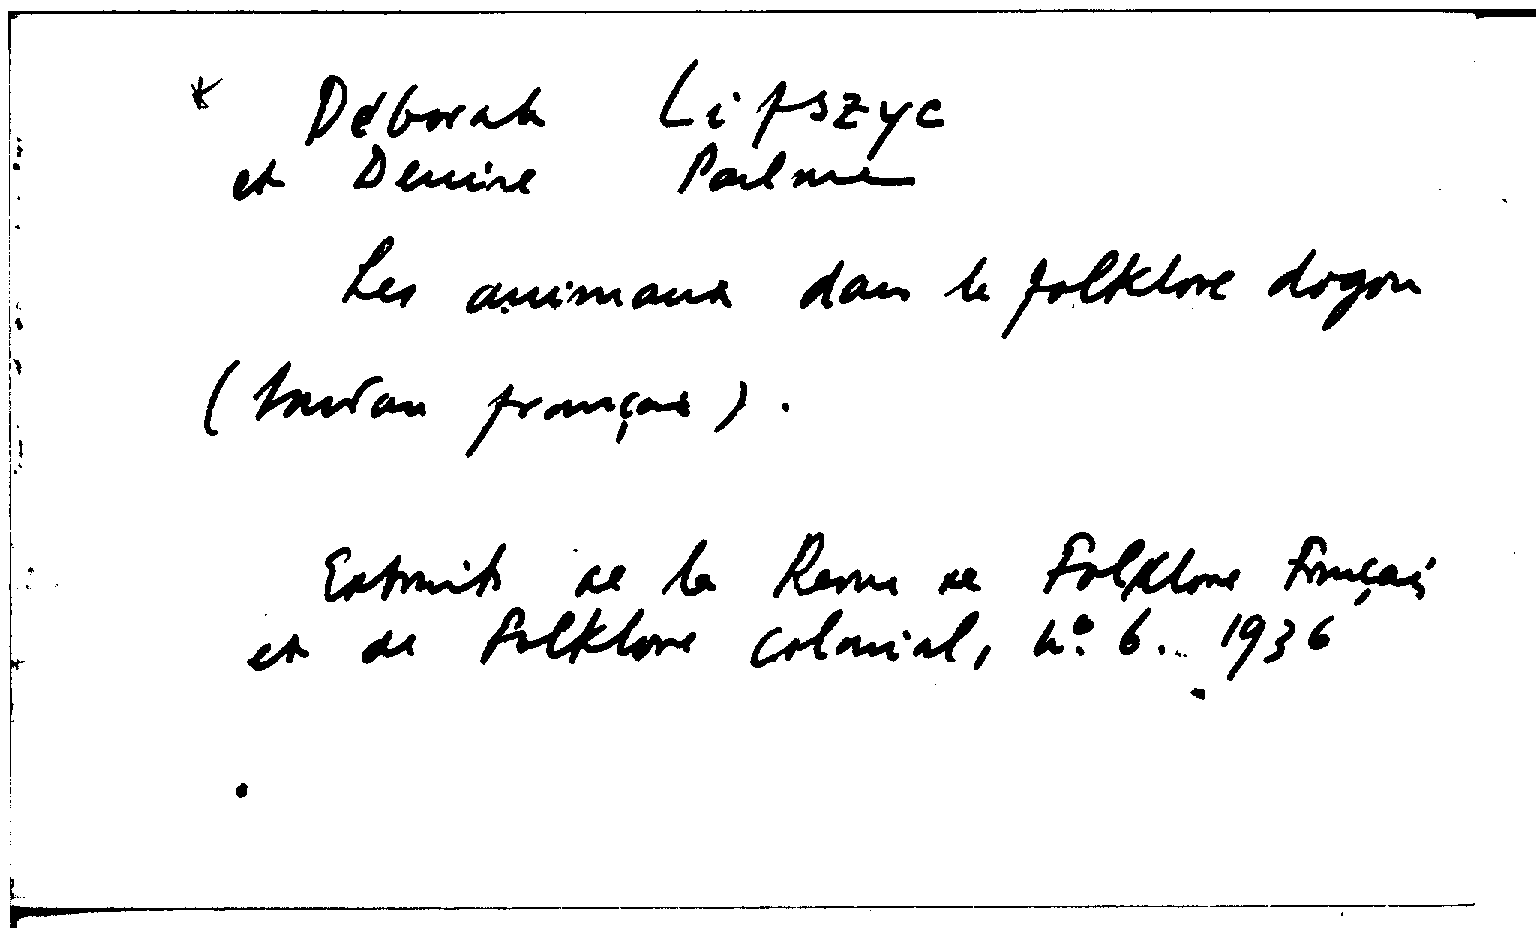 * Déborah Lifszyc
et Denise Paulme
Les animaux dans le folklore dogon
(Soudan français).
Extraits de la Revue de Folklore Français
et de Folklore Colonial, n° 6. 1936